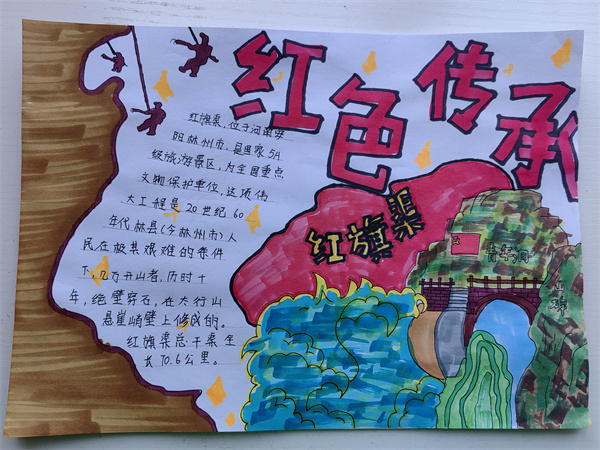 红色传承
红旗渠,位于河南安
阳林州市,是国家5A
级旅游景区,为全国重点
文物保护单位,这项伟
大工程是20世纪60
年代林县(今林州市)人
民在极其艰难的条件
下,几万开山者,历时十
年,绝壁穿石,在太行山
悬崖峭壁上修成的。
红旗渠总干渠全
长70.6公里。
红旗渠
青年洞